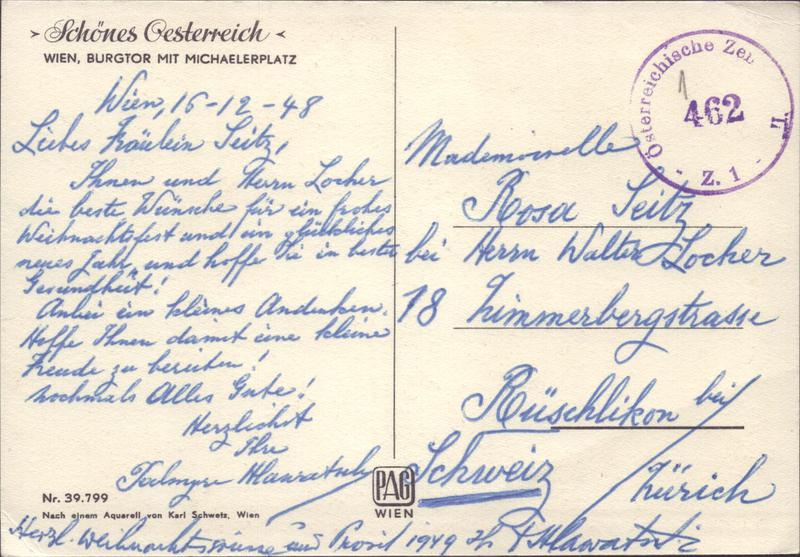 Schönes Oesterreich
WIEN, BURGTOR MIT MICHAELERPLATZ
Wien, 16-12-48
Liebes Fräulein Seitz,
Ihnen und Herrn Locher
die beste Wünsche für ein frohes
Weihnachtsfest und ein glückliches
neues Jahr und hoffe Sie in bester
Gesundheit!
Anbei ein kleines Andenken.
Hoffe Ihnen damit eine kleine
Freude zu bereiten!
Nochmals Alles Gute!
Herzlichst
Ihre
Nr. 39.799
Nach einem Aquarell von Karl Schwetz, Wien
PAG
WIEN
Herzl. Weihnachtsgrüsse und Prosit 1949
Österreichische Zen
1
462
T.
Z. 1
Mademoiselle
Rosa Seitz
bei Herrn Walter Locher
18 Zimmerbergstrasse
Rüschlikon bei
Zürich
Schweiz